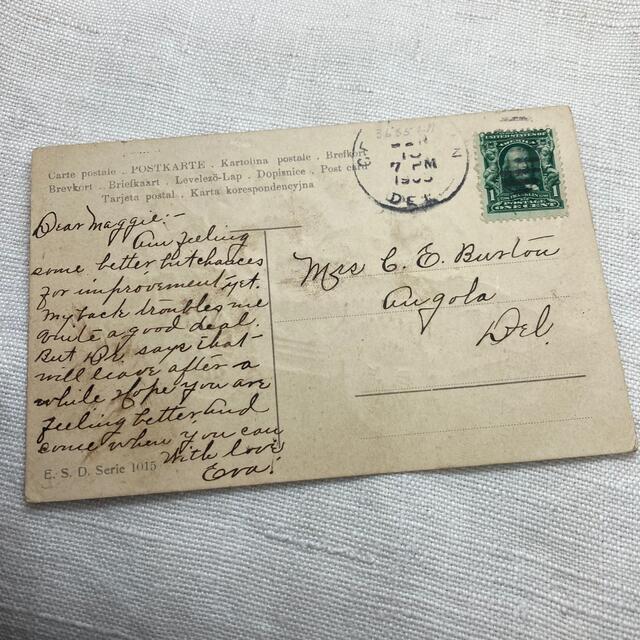 Carte postale . POSTKARTE . Kartolina postale . Brefkort
Brevkort . Briefkaart . Levelező-Lap . Dopisnice . Post card
Tarjeta postal . Karta korespondencyjna
7 PM
DEL.
UNITED STATES OF
AMERICA
1
Dear Maggie:-
Am feeling
some better but chances
for improvement yet.
My back troubles me
quite a good deal.
But Dr. says that
will leave after a
while Hope you are
feeling better and
come when you can
With love
Eva.
Mrs C. E. Burton
Angola
Del.
E. S. D. Serie 1015